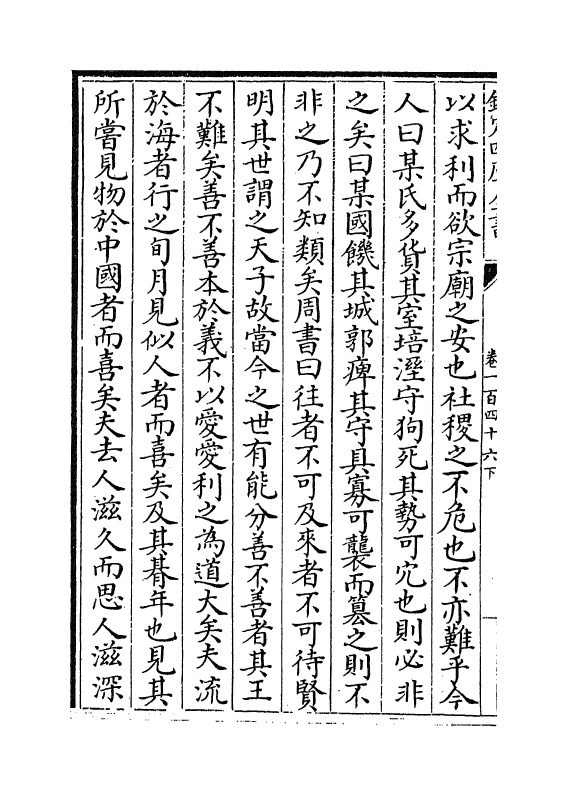 欽定四庫全書
卷一百四十六下
以求利而欲宗廟之安也社稷之不危也不亦難乎今
人曰某氏多貨其室培溼守狗死其勢可穴也則必非
之矣曰某國饑其城郭痺其守具寡可襲而簒之則不
非之乃不知類矣周書曰往者不可及來者不可待賢
明其世謂之天子故當今之世有能分善不善者其王
不難矣善不善本於義不以愛愛利之為道大矣夫流
於海者行之旬月見似人者而喜矣及其朞年也見其
所嘗見物於中國者而喜矣夫去人滋久而思人滋深